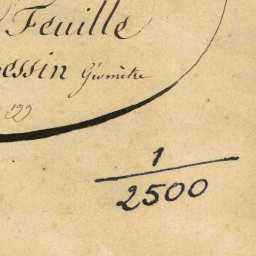 Feuille
essin Géomètre
1
2500